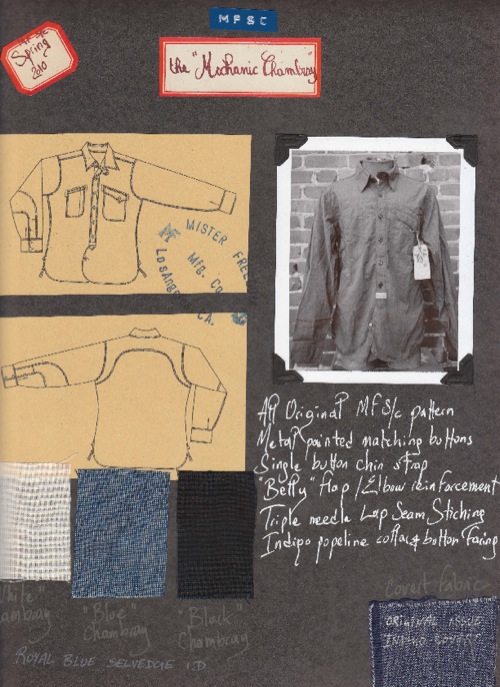 MFSC
MFSC
Spring
2010
the "Mechanic Chambray"
MISTER FREE
MFG. Co
Los Angel
CA.
All Original MFS/c pattern
Metal painted matching buttons
Single button chin strap
"Betty" flap / Elbow reinforcement
Triple needle Lap Seam Stiching
Indigo popeline collar & button facing
Covert fabric
ORIGINAL ISSUE
INDIGO COVERT
"White"
Chambray
"Blue"
Chambray
"Black"
Chambray
ROYAL BLUE SELVEDGE I.D